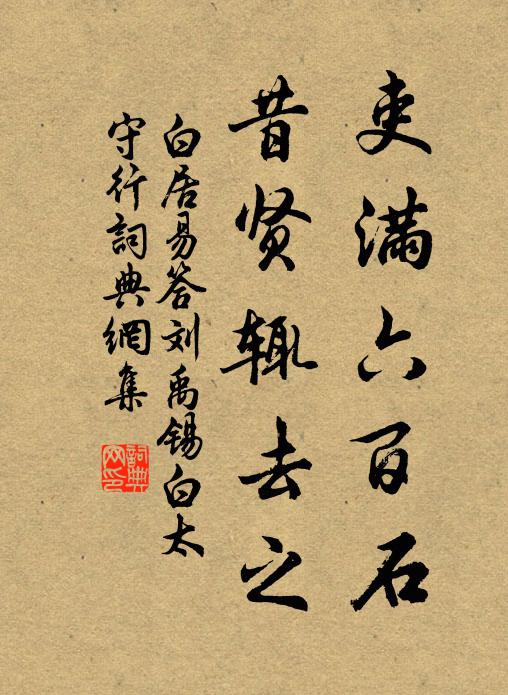 吏满六百石
昔贤辄去之
白居易答刘禹锡白太
守行詞典網集
詞典
网印